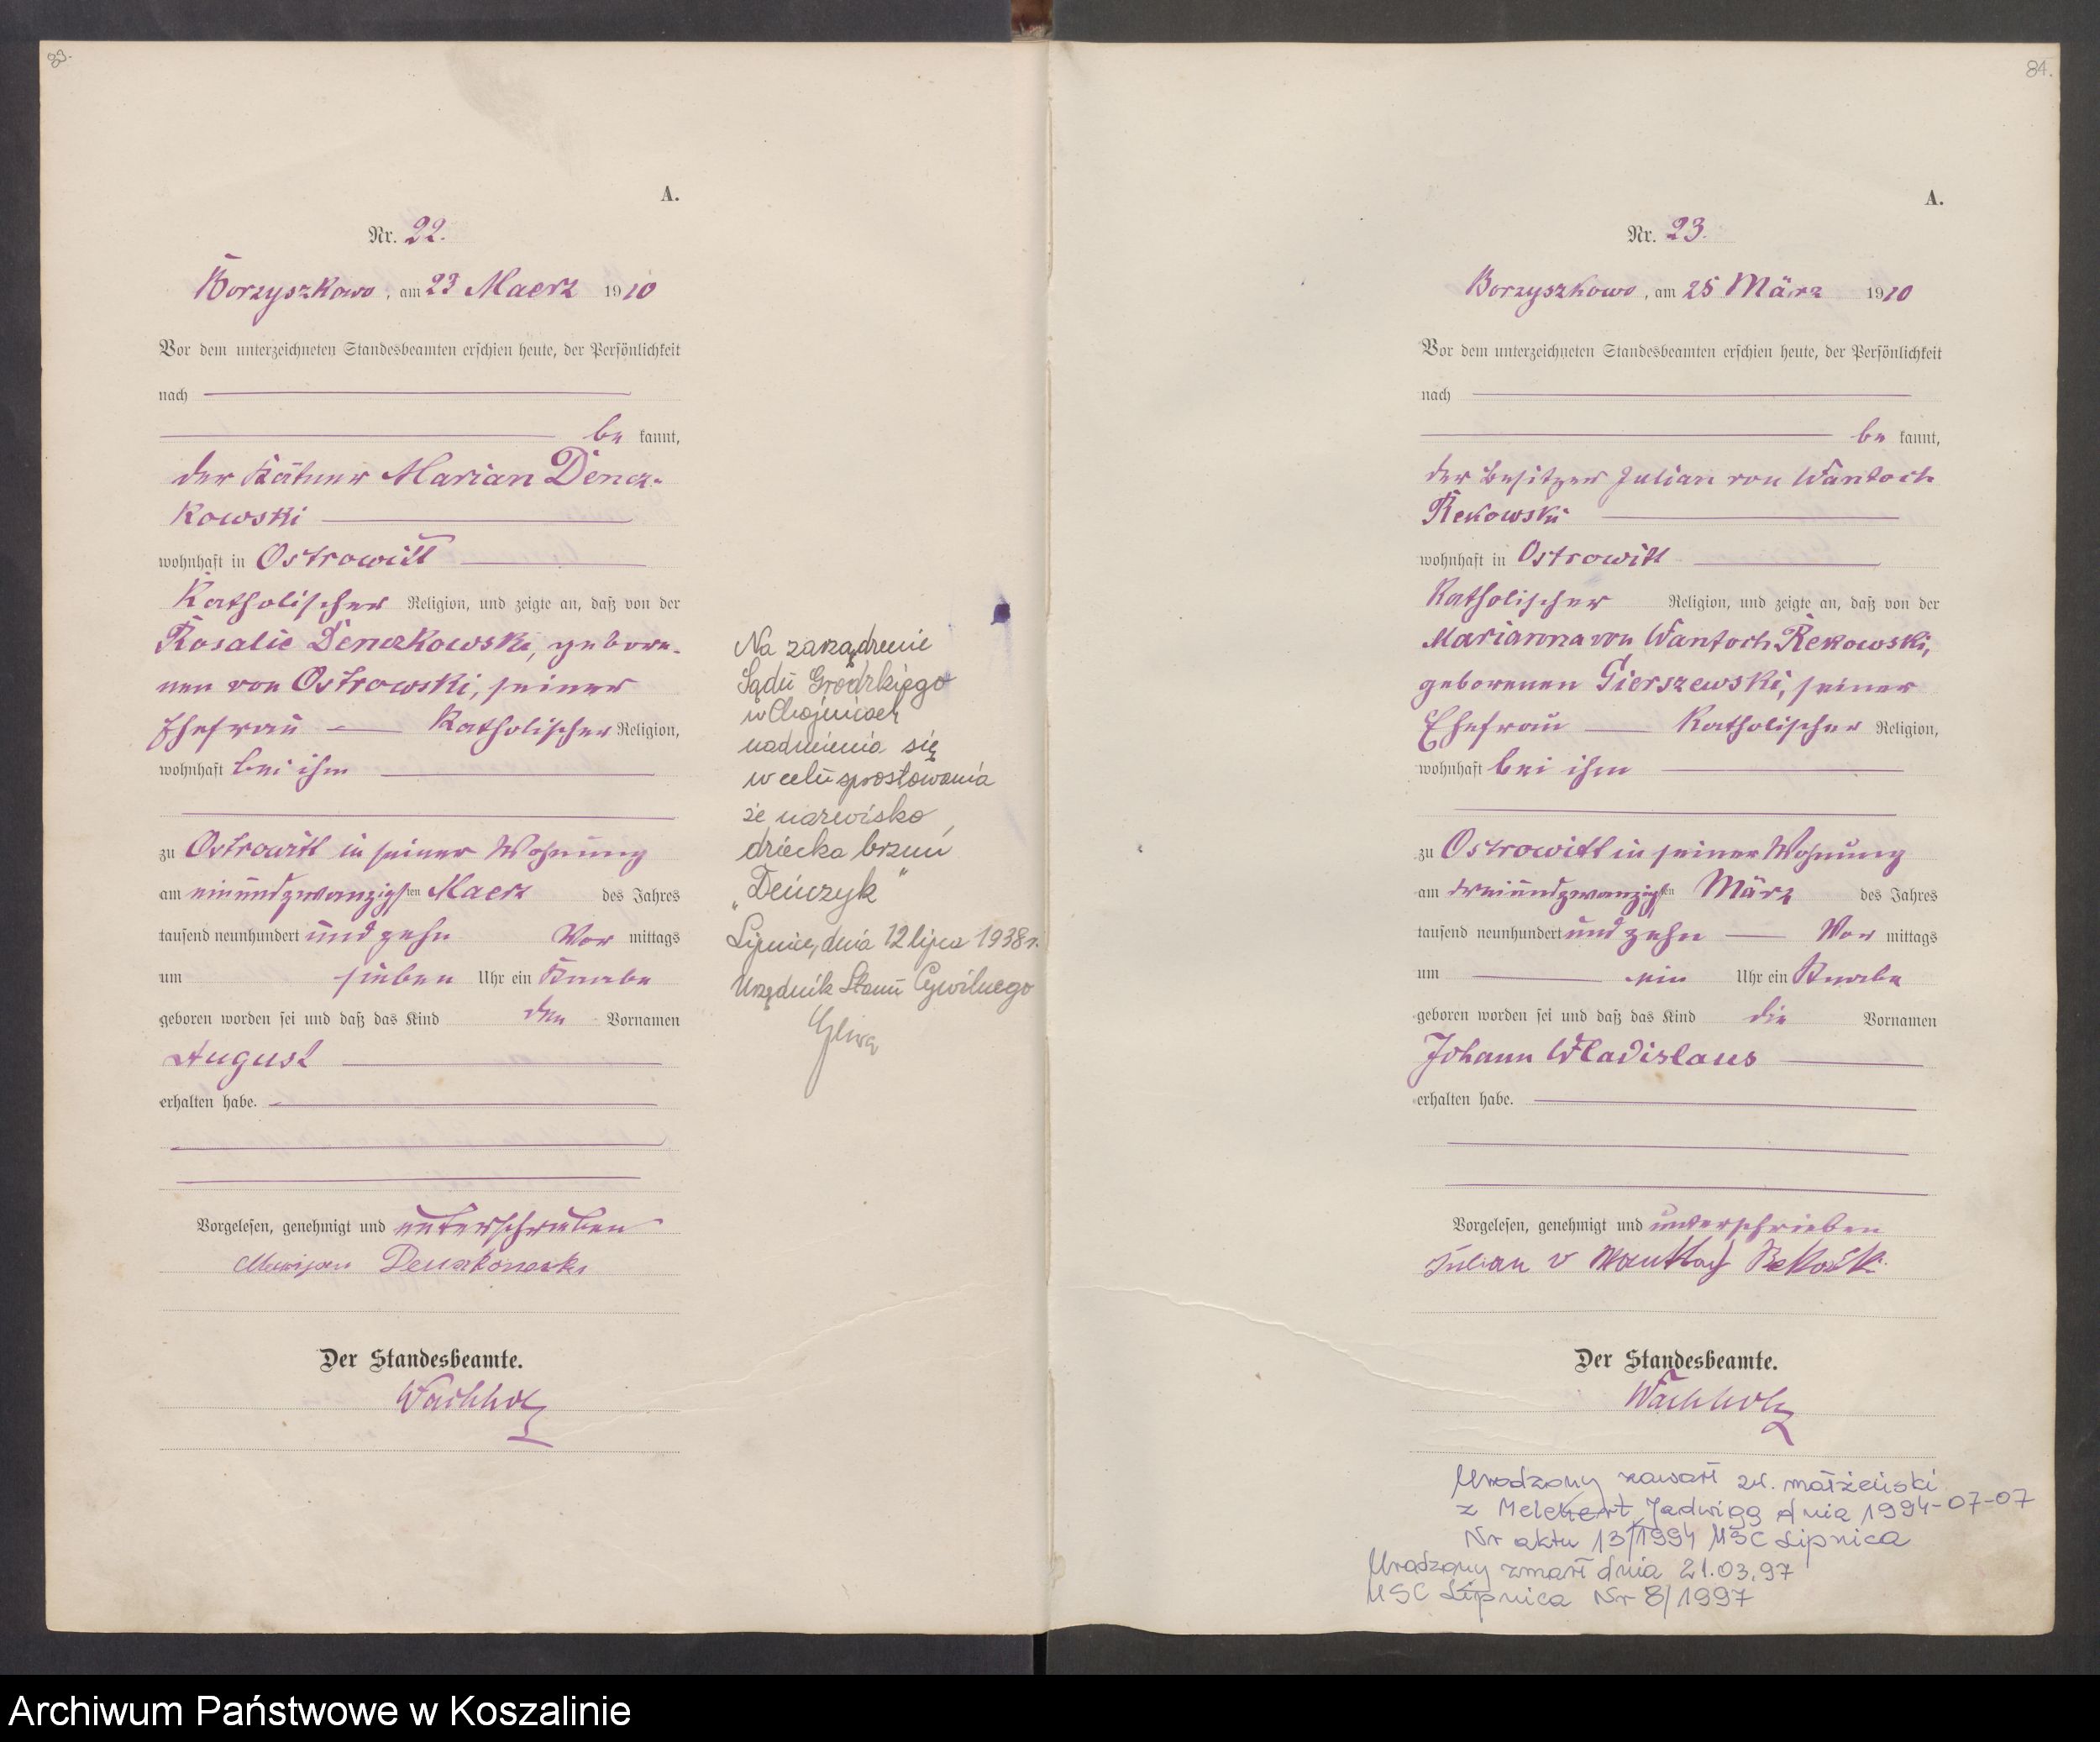 83.
A.
Nr. 22.
Borzyszkowo, am 23 Maerz 1910
Vor dem unterzeichneten Standesbeamten erschien heute, der Persönlichkeit
nach
be kannt,
der Kätner Marian Dencz-
kowski
wohnhaft in Ostrowitt
katholischer Religion, und zeigte an, daß von der
Rosalie Denczkowski, gebore-
nen von Ostrowski, seiner
Ehefrau — katholischer Religion,
wohnhaft bei ihm
zu Ostrowitt in seiner Wohnung
am einundzwanzigsten Maerz des Jahres
tausend neunhundert und zehn Vor mittags
um sieben Uhr ein Knabe
geboren worden sei und daß das Kind den Vornamen
August
erhalten habe.
Vorgelesen, genehmigt und unterschrieben
Marijan Denczkowski
Der Standesbeamte.
Wachholz
Na zarządzenie
Sądu Grodzkiego
w Chojnicach
nadmienia się
w celu sprostowania
że nazwisko
dziecka brzmi
„Deńczyk"
Lipnica, dnia 12 lipca 1938 r.
Urzędnik Stanu Cywilnego
84.
A.
Nr. 23.
Borzyszkowo, am 25 März 1910
Vor dem unterzeichneten Standesbeamten erschien heute, der Persönlichkeit
nach
be kannt,
der Besitzer Julian von Wantoch
Rekowski
wohnhaft in Ostrowitt
katholischer Religion, und zeigte an, daß von der
Marianna von Wantoch Rekowski,
geborenen Gierszewski, seiner
Ehefrau — katholischer Religion,
wohnhaft bei ihm
zu Ostrowitt in seiner Wohnung
am dreiundzwanzigsten März des Jahres
tausend neunhundert und zehn — Vor mittags
um — ein Uhr ein Knabe
geboren worden sei und daß das Kind die Vornamen
Johann Wladislaus
erhalten habe.
Vorgelesen, genehmigt und unterschrieben
Julian v Wantoch Rekowski
Der Standesbeamte.
Wachholz
Urodzony zawarł zw. małżeński
z Melchert Jadwigą dnia 1994-07-07
Nr aktu 13/1994 USC Lipnica
Urodzony zmarł dnia 21.03.97
USC Lipnica Nr 8/1997
Archiwum Państwowe w Koszalinie